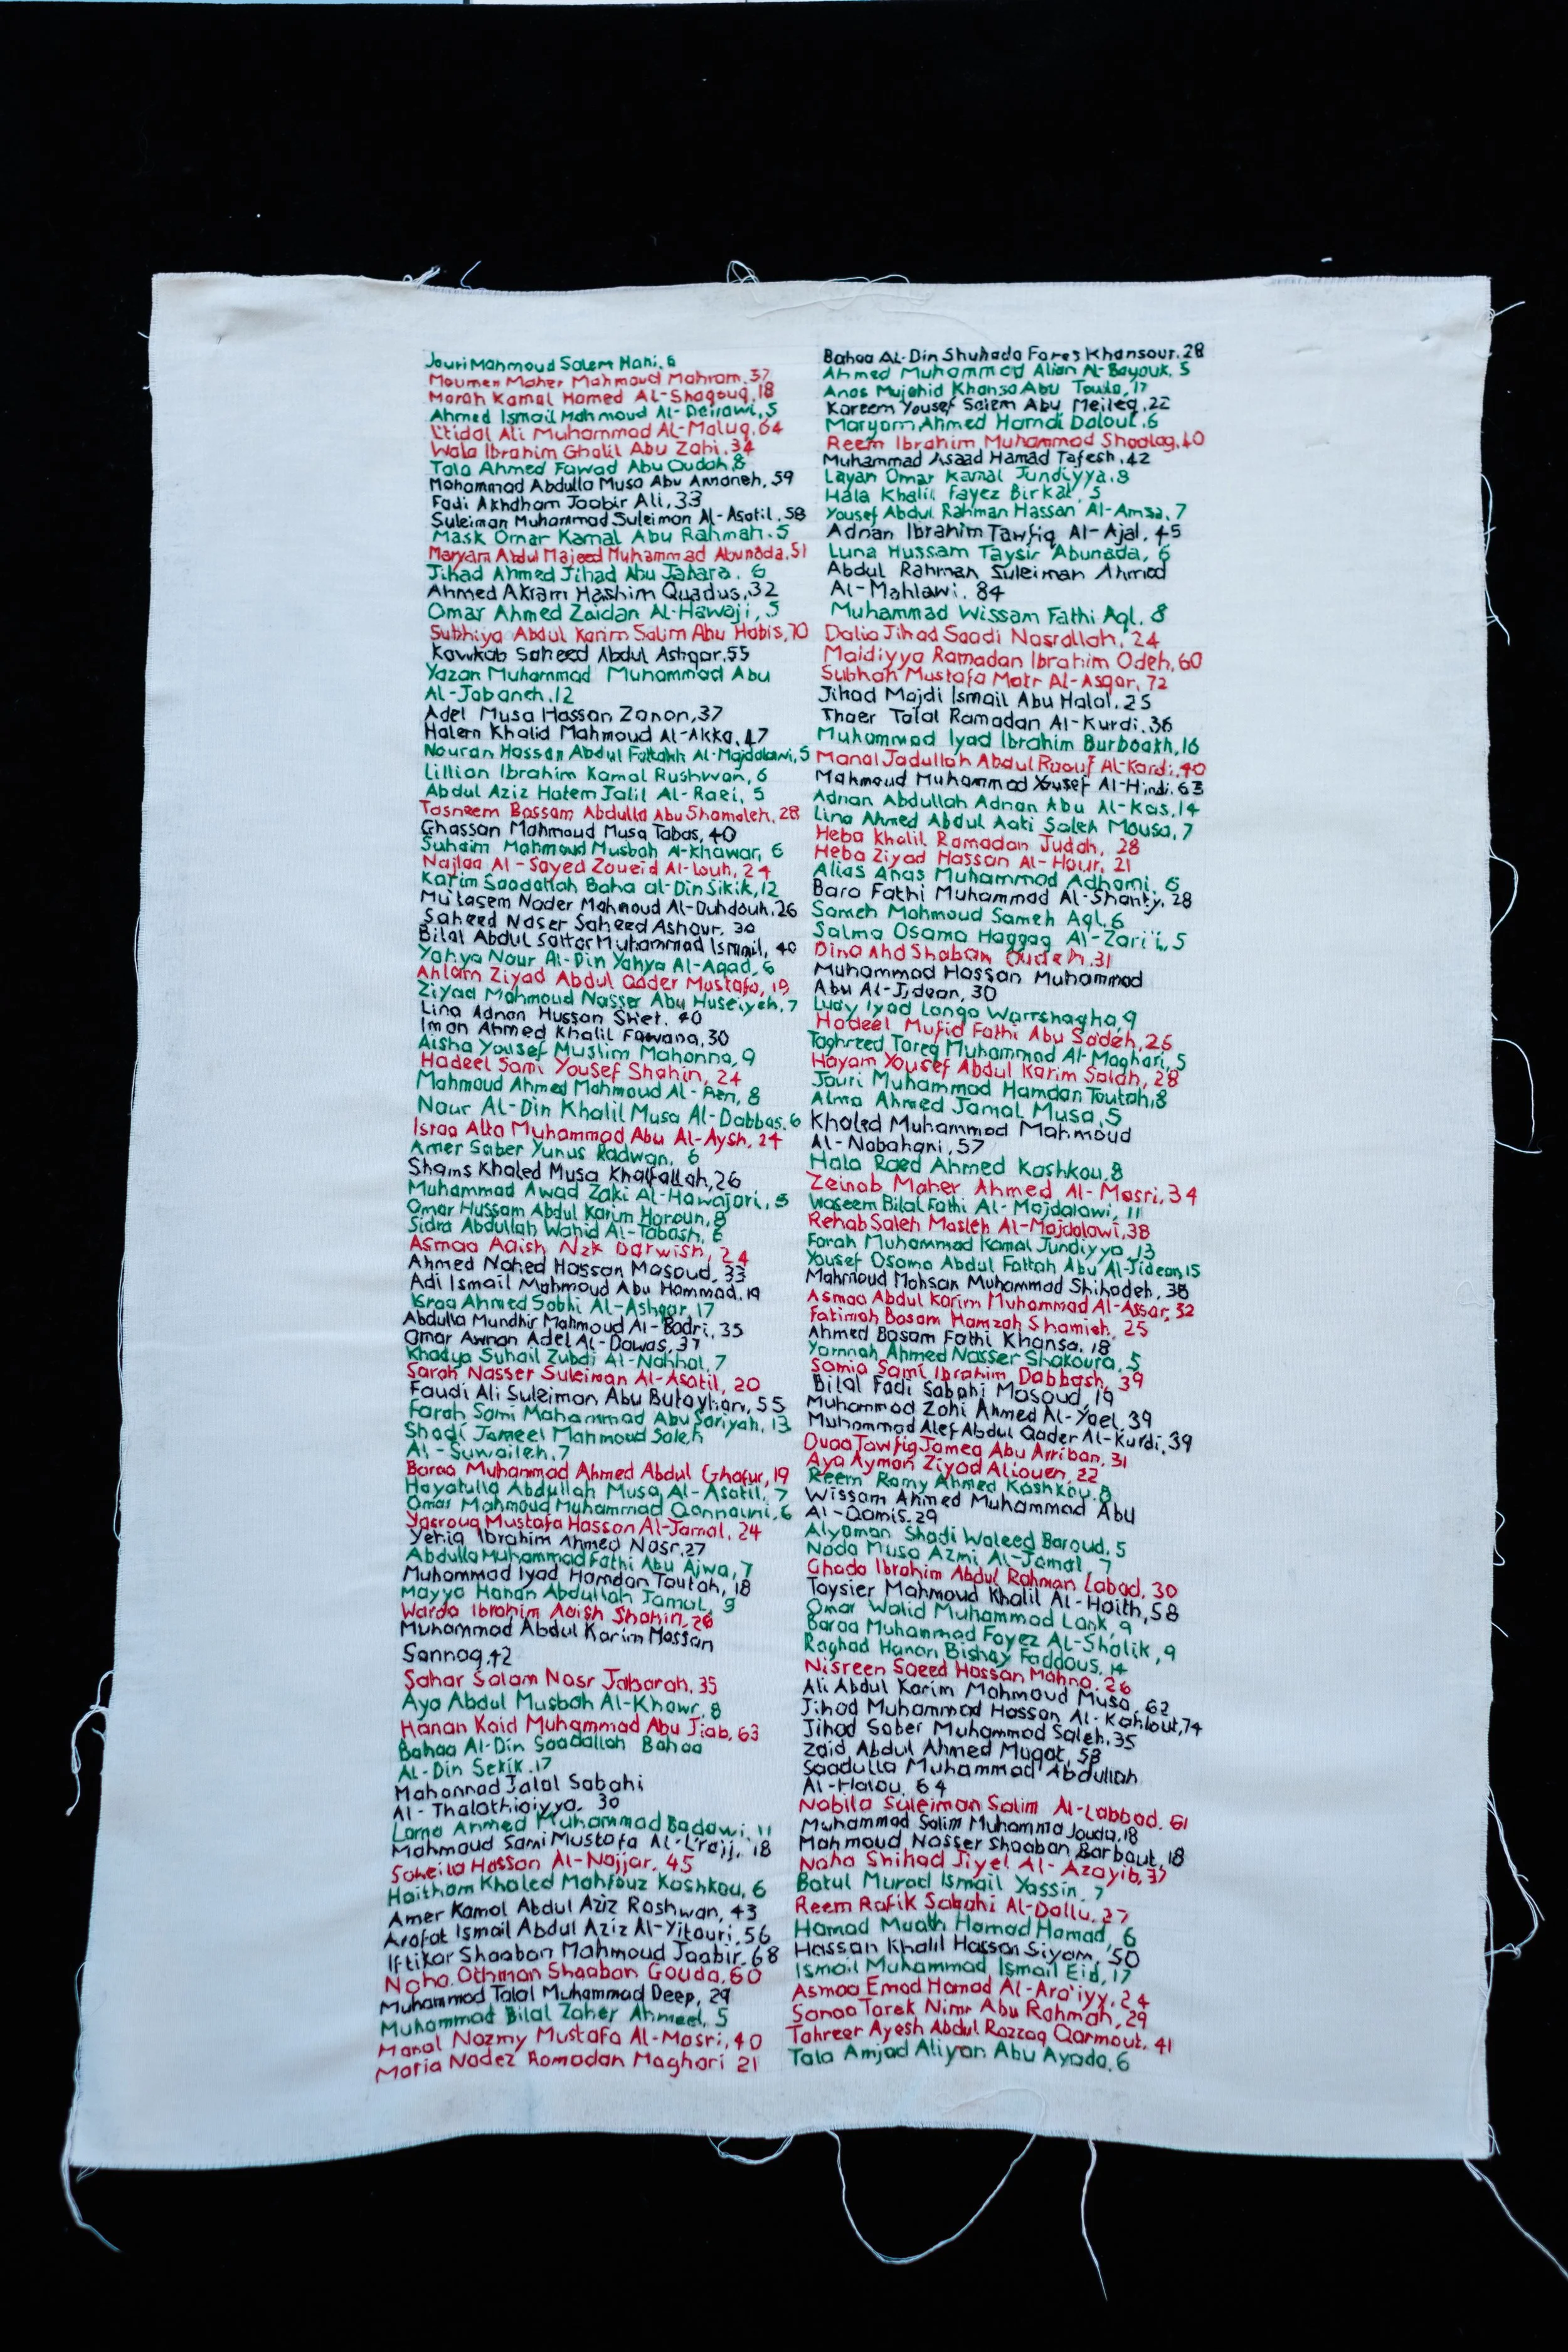 Jouri Mahmoud Salem Hani. 6
Moumen Maher Mahmoud Mahram. 37
Marah Kamal Hamed Al-Shaqouq, 18
Ahmed Ismail Mahmoud Al-Deirawi, 5
L'tidal Ali Muhammad Al-Maluq, 64
Wala Ibrahim Ghalil Abu Zahi. 34
Tala Ahmed Fawad Abu Oudah, 8
Mohammad Abdulla Musa Abu Amaneh, 59
Fadi Akhdham Jaabir Ali, 33
Suleiman Muhammad Suleiman Al-Asatil. 58
Mask Omar Kamal Abu Rahmah. 5
Maryam Abdul Majeed Muhammad Abunada, 51
Jihad Ahmed Jihad Abu Jabara. 6
Ahmed Akram Hashim Quadus, 32
Omar Ahmed Zaidan Al-Hawaji, 5
Subhiya Abdul Karim Salim Abu Habis, 70
Kawkab Saheed Abdul Ashqar. 55
Yazan Muhammad Muhammad Abu
Al-Jabaneh. 12
Adel Musa Hassan Zanon, 37
Halem Khalid Mahmoud Al-Akka, 47
Nouran Hassan Abdul Fattakh Al-Majdalawi, 5
Lillian Ibrahim Kamal Rushwan, 6
Abdul Aziz Hatem Jalil Al-Raei, 5
Tasneem Bassam Abdulla Abu Shamaleh, 28
Ghassan Mahmoud Musa Tabas, 40
Suhaim Mahmoud Musbah A-khawar, 6
Najlaa Al-Sayed Zoueid Al-Louh, 24
Karim Saadallah Baha al-Din Sikik, 12
Mu'tasem Nader Mahmoud Al-Duhdouh. 26
Saheed Naser Saheed Ashour. 30
Bilal Abdul Sattar Muhammad Ismail, 40
Yahya Nour Al-Din Yahya Al-Aqad, 6
Ahlam Ziyad Abdul Qader Mustafa, 19
Ziyad Mahmoud Nasser Abu Huseiyeh, 7
Lina Adnan Hussan Shiet. 40
Iman Ahmed Khalil Fawana, 30
Aisha Yousef Muslim Mahonna, 9
Hadeel Sami Yousef Shahin, 24
Mahmoud Ahmed Mahmoud Al-Aen, 8
Nour Al-Din Khalil Musa Al-Dabbas. 6
Israa Alta Muhammad Abu Al-Aysh. 24
Amer Saber Yunus Radwan, 6
Shams Khaled Musa Khalfallah, 26
Muhammad Awad Zaki Al-Hawajari, 5
Omar Hussam Abdul Karim Haroun, 8
Sidra Abdullah Wahid Al-Tabash, 6
Asmaa Aaish Nzk Darwish, 24
Ahmed Nahed Hassan Masoud, 33
Adi Ismail Mahmoud Abu Hammad. 19
Israa Ahmed Sobhi Al-Ashqar, 17
Abdulla Mundhir Mahmoud Al-Badri, 35
Omar Awnan Adel Al-Dawas, 37
Khadya Suhail Zubdi Al-Nahhal. 7
Sarah Nasser Suleiman Al-Asatil, 20
Faudi Ali Suleiman Abu Butayhan, 55
Farah Sami Mahammad Abu Sariyah, 13
Shadi Jameel Mahmoud Saleh
Al-Suwaileh, 7
Baraa Muhammad Ahmed Abdul Ghafur, 19
Hayatulla Abdullah Musa Al-Asatil, 7
Omar Mahmoud Muhammad Qannauni, 6
Yasrouq Mustafa Hassan Al-Jamal, 24
Yeriq Ibrahim Ahmed Nasr. 27
Abdulla Muhammad Fathi Abu Ajwa, 7
Muhammad Iyad Hamdan Toutah, 18
Mayya Hanan Abdullah Jamal, 9
Warda Ibrahim Aaish Shahin, 26
Muhammad Abdul Karim Hassan
Sannaq, 42
Sahar Salam Nasr Jabarah, 35
Aya Abdul Musbah Al-Khawr, 8
Hanan Kaid Muhammad Abu Jiab, 63
Bahaa Al-Din Saadallah Bahaa
Al-Din Sekik. 17
Mahonnad Jalal Sabahi
Al-Thalathiniyya, 30
Lama Ahmed Muhammad Badawi. 11
Mahmoud Sami Mustafa Al-L'rajj, 18
Soheila Hassan Al-Najjar, 45
Haitham Khaled Mahfouz Kashkou, 6
Amer Kamal Abdul Aziz Rashwan, 43
Arafat Ismail Abdul Aziz Al-Yitouri. 56
Iftikar Shaaban Mahmoud Jaabir. 68
Naha. Othman Shaaban Gouda, 60
Muhammad Talal Muhammad Deep, 29
Muhammad Bilal Zaher Ahmed, 5
Manal Nazmy Mustafa Al-Masri, 40
Maria Nadez Ramadan Maghari 21
Bahaa Al-Din Shuhada Fares Khansour. 28
Ahmed Muhammad Alian Al-Bayouk. 5
Anas Mujahid Khansa Abu Taula, 17
Kareem Yousef Salem Abu Meileq, 22
Maryam Ahmed Hamdi Dalout. 6
Reem Ibrahim Muhammad Shaalag. 40
Muhammad Asaad Hamad Tafesh. 42
Layan Omar Kamal Jundiyya. 8
Hala Khalil Fayez Birkat. 5
Yousef Abdul Rahman Hassan Al-Amsa, 7
Adnan Ibrahim Tawfiq Al-Ajal, 45
Luna Hussam Taysir Abunada, 6
Abdul Rahman Suleiman Ahmed
Al-Mahlawi. 84
Muhammad Wissam Fathi Aql. 8
Dalia Jihad Saadi Nasrallah, 24
Maidiyya Ramadan Ibrahim Odeh, 60
Subhah Mustafa Matr Al-Asqar, 72
Jihad Majdi Ismail Abu Halal. 25
Thaer Talal Ramadan Al-Kurdi. 36
Muhammad Iyad Ibrahim Burboakh, 16
Manal Jadullah Abdul Raouf Al-Kardi, 40
Mahmoud Muhammad Yousef Al-Hindi. 63
Adnan Abdullah Adnan Abu Al-Kas, 14
Lina Ahmed Abdul Aati Saleh Mousa, 7
Heba Khalil Ramadan Judah, 28
Heba Ziyad Hassan Al-Hour. 21
Alias Anas Muhammad Adhami. 6
Bara Fathi Muhammad Al-Shanty. 28
Sameh Mahmoud Sameh Aql. 6
Salma Osama Haggag Al-Zari'i, 5
Dina Ahd Shaban Oudeh. 31
Muhammad Hassan Muhammad
Abu Al-Jidean, 30
Ludy Iyad Langa Warrshagha, 9
Hadeel Mufid Fathi Abu Sadeh, 26
Taghreed Tareq Muhammad Al-Maghari, 5
Hayam Yousef Abdul Karim Salah, 28
Jouri Muhammad Hamdan Toutah, 8
Alma Ahmed Jamal Musa, 5
Khaled Muhammed Mahmoud
Al-Nabahani, 57
Hala Raed Ahmed Kashkou, 8
Zeinab Maher Ahmed Al-Masri, 34
Waseem Bilal Fathi Al-Majdalawi, 11
Rehab Saleh Masleh Al-Majdalawi, 38
Farah Muhammad Kamal Jundiyya, 13
Yousef Osama Abdul Fattah Abu Al-Jidean, 15
Mahmoud Mohsan Muhammad Shihadeh, 38
Asmaa Abdul Karim Muhammad Al-Assar, 32
Fatimah Basam Hamzah Shamieh, 25
Ahmed Basam Fathi Khansa, 18
Yamnah Ahmed Nasser Shakoura. 5
Samia Sami Ibrahim Dabbash, 39
Bilal Fadi Sabahi Masoud, 19
Muhammad Zahi Ahmed Al-Yael, 39
Muhammad Alef Abdul Qader Al-Kurdi, 39
Duaa Tawfiq Jamea Abu Arriban, 31
Aya Ayman Ziyad Aliouen, 22
Reem Ramy Ahmed Kashkou, 8
Wissam Ahmed Muhammad Abu
Al-Qamis. 29
Alyaman Shadi Waleed Baroud. 5
Nada Musa Azmi Al-Jamal, 7
Ghada Ibrahim Abdul Rahman Labad, 30
Taysier Mahmoud Khalil Al-Haith, 58
Omar Walid Muhammad Lank, 9
Baraa Muhammad Fayez Al-Shalik, 9
Raghad Hanan Bishay Faddous, 14
Nisreen Saeed Hassan Mahna. 26
Ali Abdul Karim Mahmoud Musa, 62
Jihad Muhammad Hassan Al-Kahlout, 74
Jihad Saber Muhammad Saleh. 35
Zaid Abdul Ahmed Muqat, 58
Saadulla Muhammad Abdullah
Al-Halou, 64
Nabila Suleiman Salim Al-Labbad. 61
Muhammad Salim Muhamma Jouda, 18
Mahmoud Nasser Shaaban Barbaut, 18
Naha Shihad Jiyel Al-Azayib, 37
Batul Murad Ismail Yassin, 7
Reem Rafik Sabahi Al-Dallu. 27
Hamad Muath Hamad Hamad, 6
Hassan Khalil Hassan Siyam, 50
Ismail Muhammad Ismail Eid, 17
Asmaa Emad Hamad Al-Ara'iyy, 24
Sanaa Tarek Nimr Abu Rahmah, 29
Tahreer Ayesh Abdul Razzaq Qarmout. 41
Tala Amjad Aliyan Abu Ayada, 6